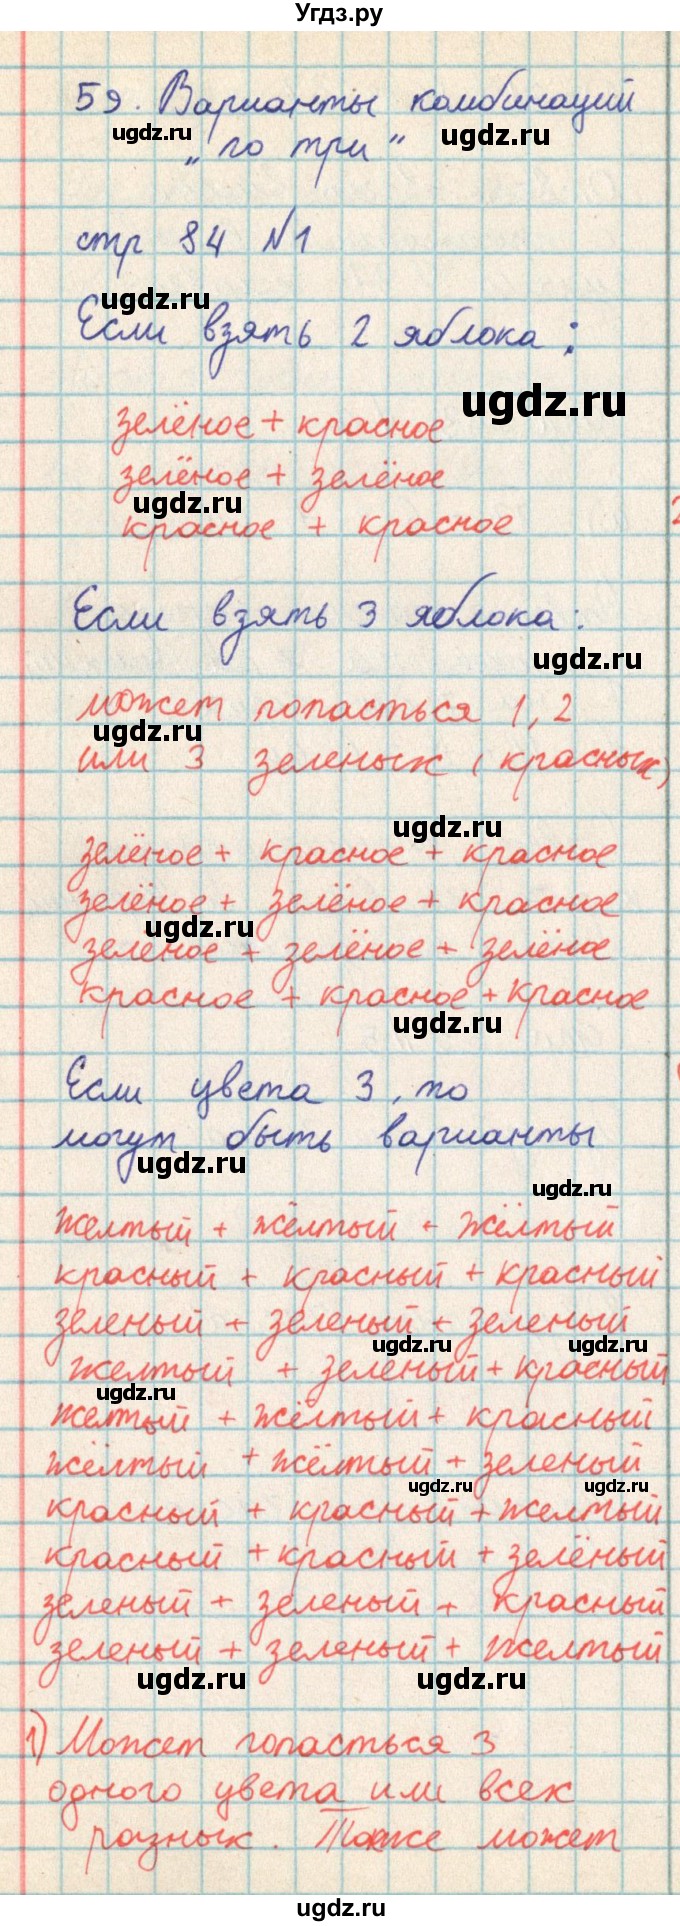 Угдз.ру
59. Варианты комбинаций
ugdz.ru
ugdz.ru
„по три“
стр 84 N1
ugdz.ru
Если взять 2 яблока:
ugdz.ru
зелёное + красное
зелёное + зелёное
ugdz.ru
красное + красное
Если взять 3 яблока:
ugdz.ru
может попасться 1, 2
ugdz.ru
или 3 зеленых (красных)
ugdz.ru
зелёное + красное + красное
зелёное + зелёное + красное
ugdz.ru
зеленое + зелёное + зелёное
красное + красное + красное
ugdz.ru
Если цвета 3, то
могут быть варианты
ugdz.ru
ugdz.ru
желтый + жёлтый + жёлтый
красный + красный + красный
зеленый + зеленый + зеленый
ugdz.ru
ugdz.ru
желтый + зеленый + красный
ugdz.ru
желтый + жёлтый + красный
жёлтый + жёлтый + зеленый
ugdz.ru
ugdz.ru
красный + красный + желтый
красный + красный + зелёный
зеленый + зеленый + красный
зеленый + зеленый + желтый
ugdz.ru
ugdz.ru
1) Может попасться 3
одного цвета или всех
разных. Также может
ugdz.ru